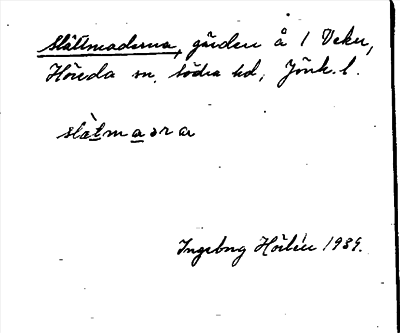 Slättmaderna, gärden å 1 Veka,
Höreda sn, Södra hd, Jönk. l.
slàtmaəra
Ingebrg Hörlén 1939.